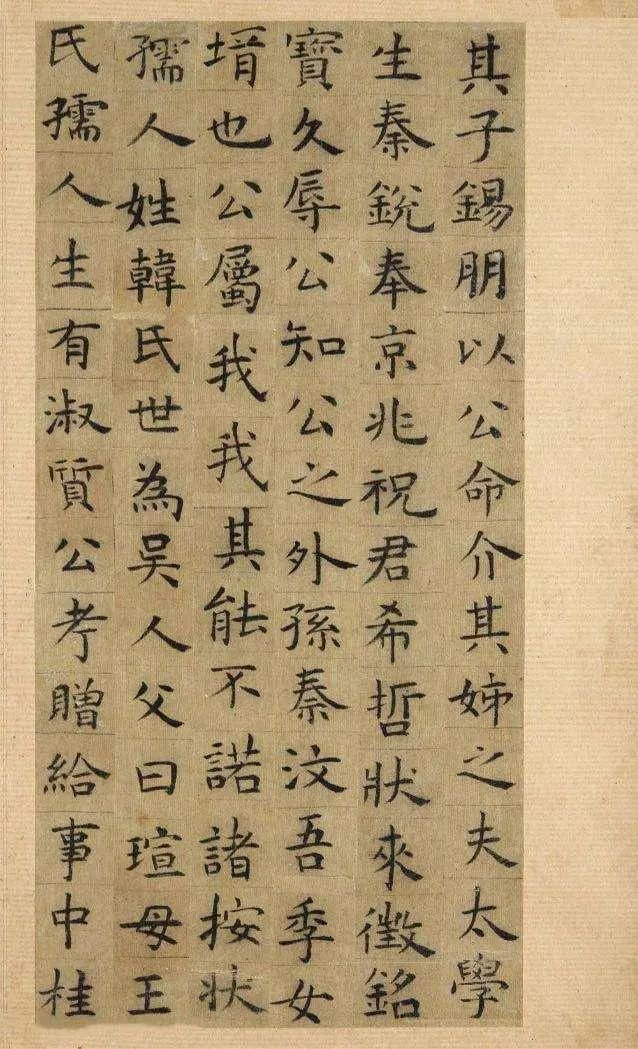 其子錫朋以公命介其姊之夫太學
生秦銳奉京兆祝君希哲狀來徵銘
寶久辱公知公之外孫秦汶吾季女
壻也公屬我我其能不諾諸按狀
孺人姓韓氏世為吳人父曰瑄母王
氏孺人生有淑質公考贈給事中桂